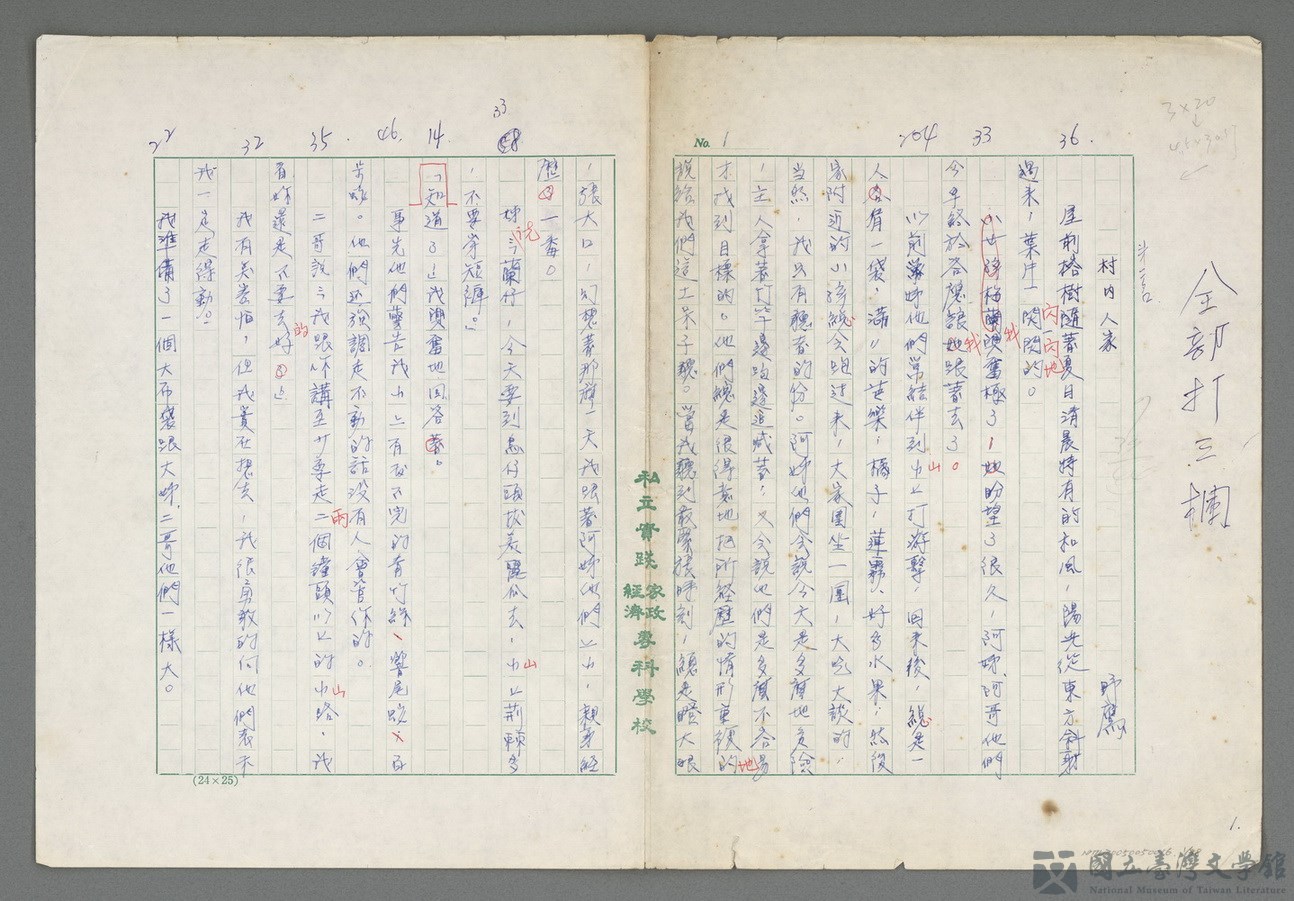 全部打三欄
村内人家
野薦
屋前榕樹隨著夏日清晨特有的和風，陽光從東方斜射
過来，葉片一閃一閃地閃閃的。
小女孩梅蘭興奮極了，她盼望了很久，阿姊、阿哥他們
今早終於答應讓她跟著去了。
以前常姊他們常結伴到山上打游擊，回来後，總是一
人各有一袋，滿〃的芭樂，橘子，蓮霧、好多水果，然後
家附近的小孩總会跑过来，大家圍坐一圈，大吃大談的，
當然，我只有聽者的份。阿姊他們会說今天是多麼地危險
，主人拿著竹竿邊跑邊追喊著，又会說他們是多麼不容易
才找到目標的。他們總是很得意地把所經歷的情形重複的地
說給我們這土呆子聽。當我聽到最緊張時刻，總是瞪大眼
，張大口，幻想著那麼一天我跟著阿姊他們上山，親身經
歷一番。
姊說：蘭仔，今天要到崙仔頭拔美濃瓜去，山上荊棘多
，不要穿短褲。」
「知道了」我興奮地回答著。
事先他們警告我山上有數不完的青竹絲、響尾蛇、百
步蛇。他們还強調走不動的話没有人會管你的。
二哥說：我跟你講至少要走二兩個鐘頭以上的山路，我
看妳還是不要去好的」
我有点害怕，但我實在想去，我很勇敢的向他們表示
我一定走得動。」
我準備了一個大布袋跟大姊、二哥他們一樣大。
No. 1
36.
33
204
33
14.
46.
35.
32
22
私立實踐家政經濟專科學校
(24×25)
1.
國立臺灣文學館
National Museum of Taiwan Literature